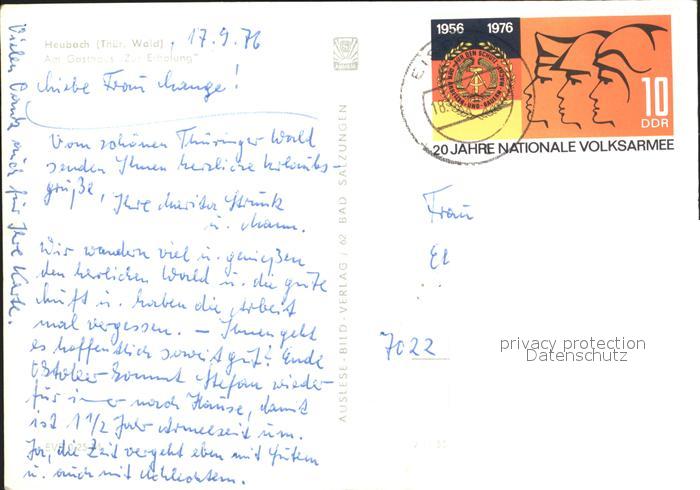 Heubach (Thür. Wald)
Am Gasthaus "Zur Erholung"
17.9.76
Liebe Frau Mange!
Vom schönen Thüringer Wald
senden Ihnen herzliche Urlaubs-
grüße, Ihre Marita Strunk
u. Mann.
Wir wandern viel u. genießen
den herrlichen Wald u. die gute
Luft u. haben die Arbeit
mal vergessen. – Ihnen geht
es hoffentlich soweit gut? Ende
Oktober kommt Stefan wieder
für immer nach Hause, damit
ist 1 1/2 Jahr Armeezeit um.
Ja, die Zeit vergeht eben mit Gutem
u. auch mit Schlechtem.
Vielen Dank auch für Ihre Karte.
AUSLESE-BILD-VERLAG / 62 BAD SALZUNGEN
1956 1976
10
DDR
20 JAHRE NATIONALE VOLKSARMEE
Frau
El
7022
privacy protection
Datenschutz